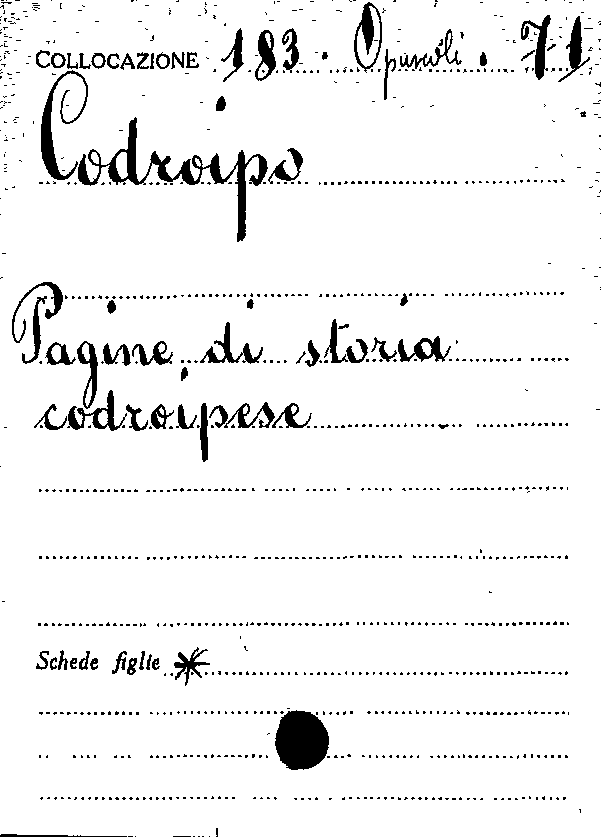 COLLOCAZIONE 183 . Opuscoli . 71
Codroipo
Pagine di storia
codroipese
Schede figlie *